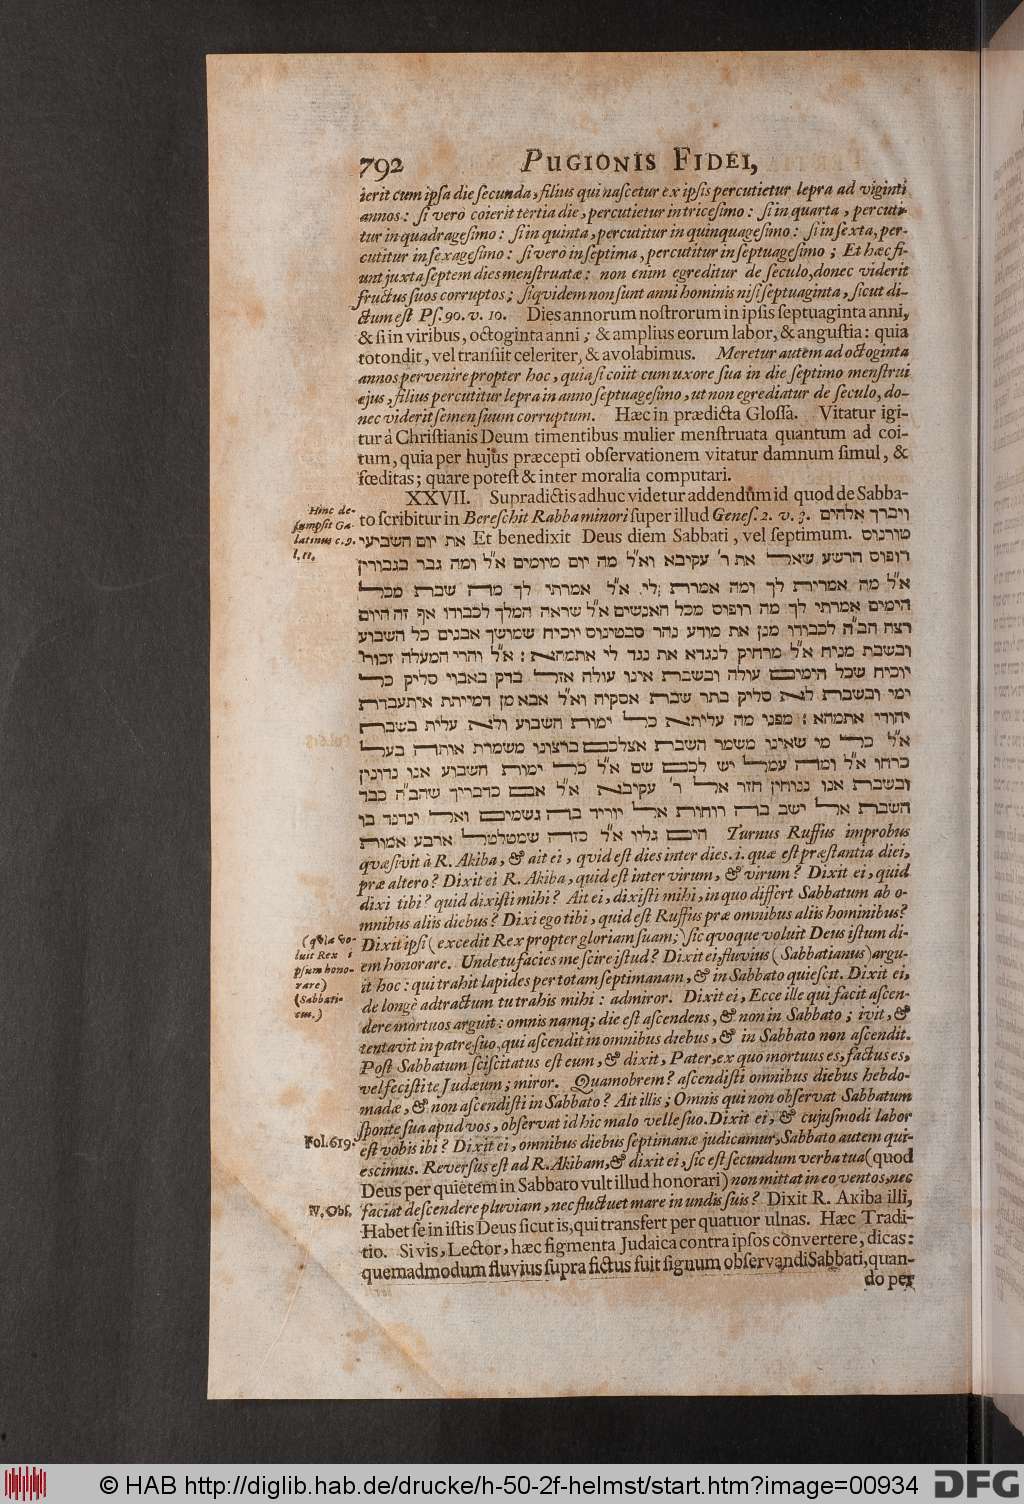 792 PUGIONIS FIDEI,
ierit cum ipſa die ſecunda, filius qui naſcetur ex ipſis percutietur lepra ad viginti
annos: ſi verò coierit tertia die, percutietur in triceſimo: ſi in quarta, percuti-
tur in quadrageſimo: ſi in quinta, percutitur in quinquageſimo: ſi in ſexta, per-
cutitur in ſexageſimo: ſi verò in ſeptima, percutitur in ſeptuageſimo; Et hæc fi-
unt juxta ſeptem dies menſtruatæ: non enim egreditur de ſeculo, donec viderit
fructus ſuos corruptos; ſiquidem non ſunt anni hominis niſi ſeptuaginta, ſicut di-
ctum eſt Pſ. 90. v. 10. Dies annorum noſtrorum in ipſis ſeptuaginta anni,
& ſi in viribus, octoginta anni; & amplius eorum labor, & anguſtia: quia
totondit, vel tranſiit celeriter, & avolabimus. Meretur autem ad octoginta
annos pervenire propter hoc, quia ſi coiit cum uxore ſua in die ſeptimo menſtrui
ejus, filius percutitur lepra in anno ſeptuageſimo, ut non egrediatur de ſeculo, do-
nec viderit ſemen ſuum corruptum. Hæc in prædicta Gloſſa. Vitatur igi-
tur à Chriſtianis Deum timentibus mulier menſtruata quantum ad coi-
tum, quia per hujus præcepti obſervationem vitatur damnum ſimul, &
fœditas; quare poteſt & inter moralia computari.
XXVII. Supradictis adhuc videtur addendum id quod de Sabba-
Hinc de-
ſumpſit Ga-
latinus c. 9.
l. 11.
to ſcribitur in Bereſchit Rabba minori ſuper illud Geneſ. 2. v. 3. ויברך אלהים
את יום השביעי Et benedixit Deus diem Sabbati, vel ſeptimum. טורנוס
רופוס הרשע שאל את ר' עקיבא וא״ל מה יום מיומים א״ל ומה גבר בגבורין
א״ל מה אמרית לך ומה אמרת לי. א״ל אמרתי לך מה שבת מכל
הימים אמרתי לך מה רופוס מכל האנשים א״ל שראה המלך לכבודו אף זה היום
רצה הב״ה לכבודו מנן את מודע נהר סבטינוס יוכיח שמושך אבנים כל השבוע
ובשבת מניח א״ל מרחיק לנגדא את נגד לי אתמהא: א״ל והרי המעלה זכורי
יוכיח שכל הימים עולה ובשבת אינו עולה אזל בדק באבוי סליק כל
ימי ובשבת לא סליק בתר שבת אסקיה וא״ל אבא מן דמייתת איתעבדת
יהודי אתמהא: מפני מה עליתא כל ימות השבוע ולא עלית בשבת
א״ל כל מי שאינו משמר השבת אצלכם ברצונו משמרת אותה בעל
כרחו א״ל ומה עמל יש לכם שם א״ל כל ימות השבוע אנו נדונין
ובשבת אנו ננוחין חזר אל ר' עקיבא א״ל אם כדבריך שהב״ה כבד
השבת אל ישב בה רוחות אל יוריד בה גשמים ואל ינדנד בו
הים גליו א״ל כזה שמטלטל ארבע אמות Turnus Ruffus improbus
quæſivit à R. Akiba, & ait ei, quid eſt dies inter dies. i. quæ eſt præſtantia diei,
præ altero? Dixit ei R. Akiba, quid eſt inter virum, & virum? Dixit ei, quid
dixi tibi? quid dixiſti mihi? Ait ei, dixiſti mihi, in quo differt Sabbatum ab o-
mnibus aliis diebus? Dixi ego tibi, quid eſt Ruffus præ omnibus aliis hominibus?
(quia vo-
luit Rex i
pſum hono-
rare)
(Sabbati-
cus.)
Dixit ipſi (excedit Rex propter gloriam ſuam;) ſic quoque voluit Deus iſtum di-
em honorare. Unde tu facies me ſcire iſtud? Dixit ei, fluvius (Sabbatianus) argu-
it hoc: qui trahit lapides per totam ſeptimanam, & in Sabbato quieſcit. Dixit ei,
de longè adtractum tu trahis mihi: admiror. Dixit ei, Ecce ille qui facit aſcen-
dere mortuos arguit: omnis namq; die eſt aſcendens, & non in Sabbato; ivit, &
tentavit in patre ſuo, qui aſcendit in omnibus diebus, & in Sabbato non aſcendit.
Poſt Sabbatum ſciſcitatus eſt eum, & dixit, Pater, ex quo mortuus es, factus es,
vel feciſti te Judæum; miror. Quamobrem? aſcendiſti omnibus diebus hebdo-
madæ, & non aſcendiſti in Sabbato? Ait illis; Omnis qui non obſervat Sabbatum
ſponte ſua apud vos, obſervat id hic malo velle ſuo. Dixit ei, & cujuſmodi labor
Fol. 619.
eſt vobis ibi? Dixit ei, omnibus diebus ſeptimanæ judicamur, Sabbato autem qui-
eſcimus. Reverſus eſt ad R. Akibam, & dixit ei, ſic eſt ſecundum verba tua (quod
Deus per quietem in Sabbato vult illud honorari) non mittat in eo ventos, nec
IV. Obſ.
faciat deſcendere pluviam, nec fluctuet mare in undis ſuis? Dixit R. Aкiba illi,
Habet ſe in iſtis Deus ſicut is, qui transfert per quatuor ulnas. Hæc Tradi-
tio. Si vis, Lector, hæc figmenta Judaica contra ipſos convertere, dicas:
quemadmodum fluvius ſupra fictus fuit ſignum obſervandi Sabbati, quan-
do per
© HAB http://diglib.hab.de/drucke/h-50-2f-helmst/start.htm?image=00934 DFG